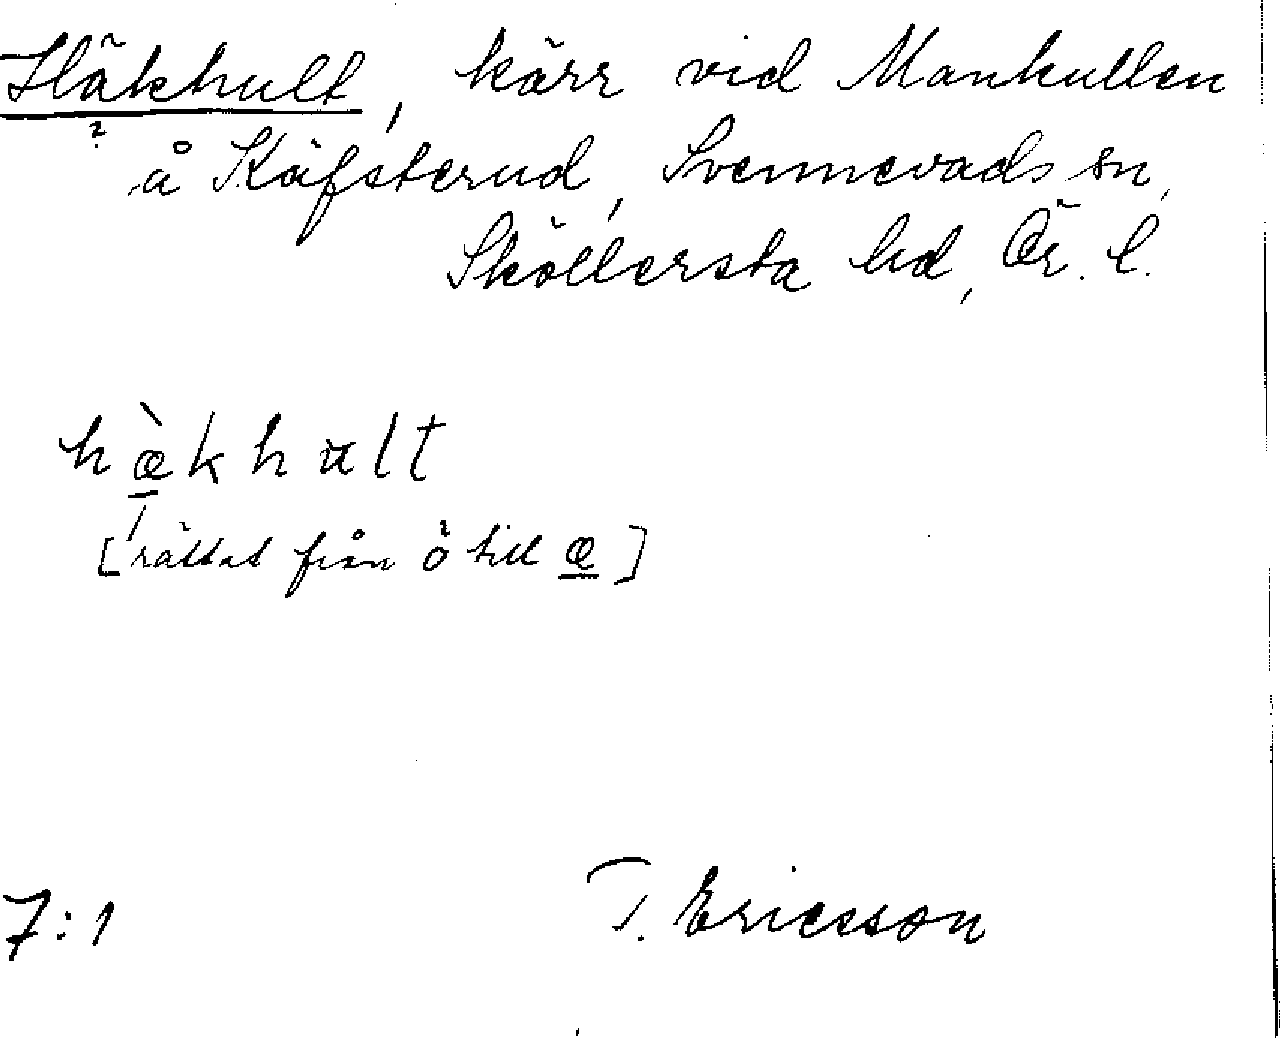 Häkhult, kärr vid Mankullen
?
å Käfsterud, Svennevads sn,
Sköllersta hd, Ör. l.
hæ̀khult
[rättat från ö̀ till æ]
7:1
T. Ericsson